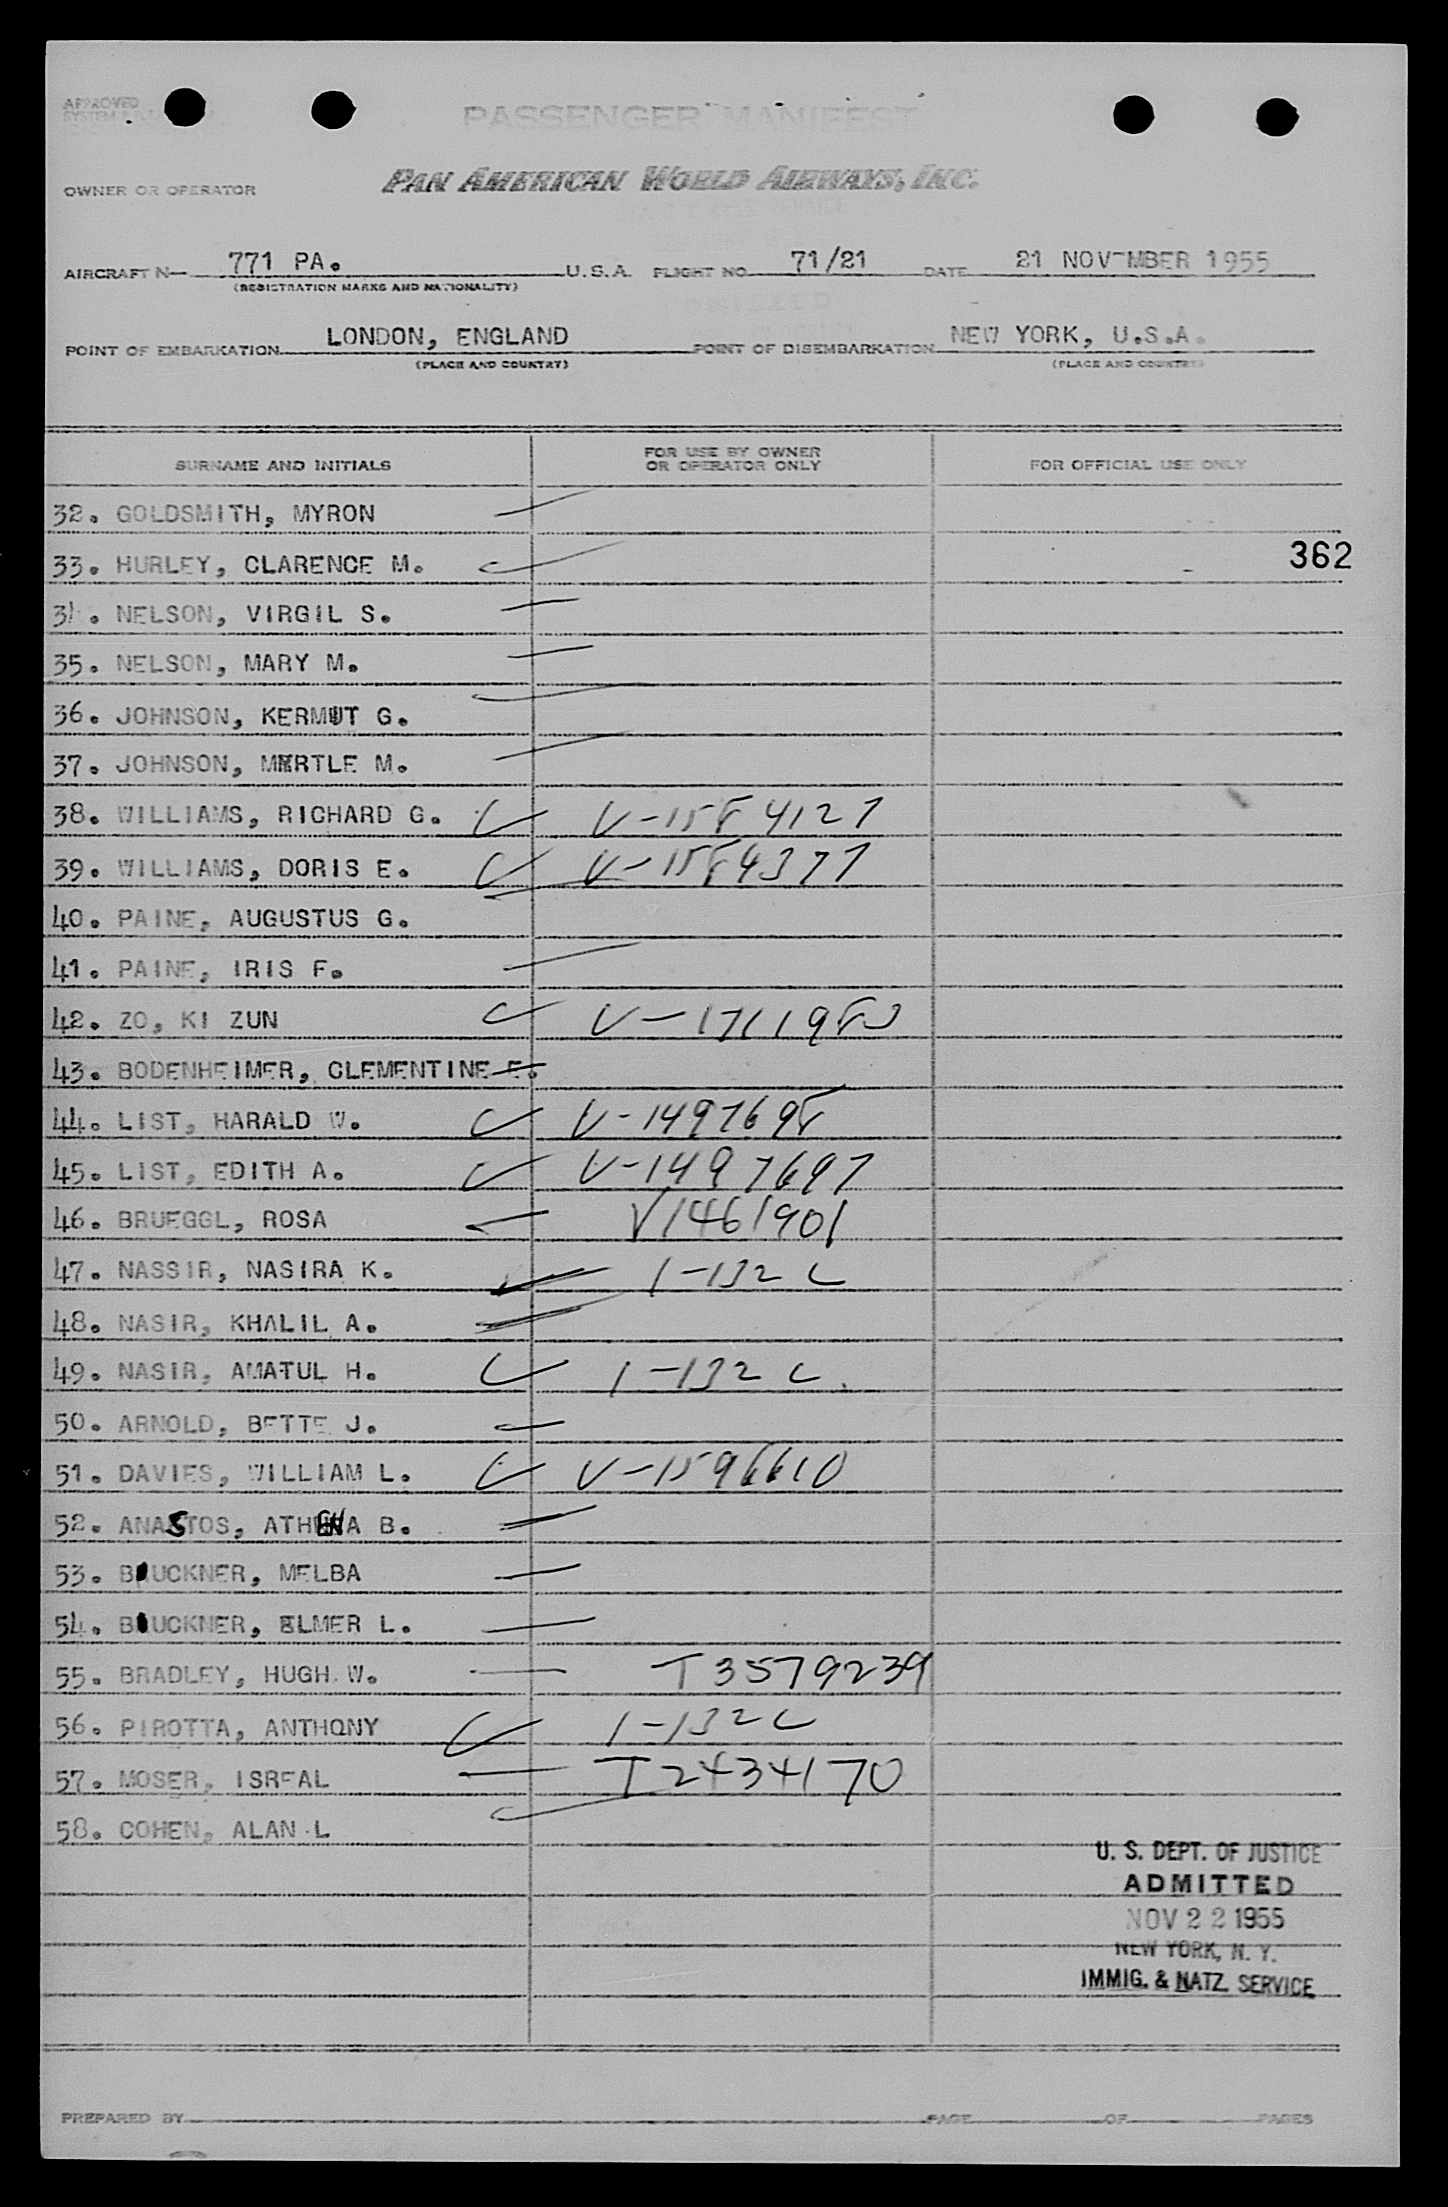 APPROVED
PASSENGER MANIFEST
OWNER OR OPERATOR PAN AMERICAN WORLD AIRWAYS, INC.
AIRCRAFT N— 771 PA. U.S.A. FLIGHT NO. 71/21 DATE 21 NOVEMBER 1955
(REGISTRATION MARKS AND NATIONALITY)
POINT OF EMBARKATION LONDON, ENGLAND POINT OF DISEMBARKATION NEW YORK, U.S.A.
(PLACE AND COUNTRY) (PLACE AND COUNTRY)
SURNAME AND INITIALS FOR USE BY OWNER OR OPERATOR ONLY FOR OFFICIAL USE ONLY
32. GOLDSMITH, MYRON
33. HURLEY, CLARENCE M. 362
34. NELSON, VIRGIL S.
35. NELSON, MARY M.
36. JOHNSON, KERMIT G.
37. JOHNSON, MYRTLE M.
38. WILLIAMS, RICHARD G. V-1584127
39. WILLIAMS, DORIS E. V-1584377
40. PAINE, AUGUSTUS G.
41. PAINE, IRIS F.
42. ZO, KI ZUN V-1711983
43. BODENHEIMER, CLEMENTINE E.
44. LIST, HARALD W. V-1497698
45. LIST, EDITH A. V-1497697
46. BRUEGGL, ROSA V1461901
47. NASSIR, NASIRA K. 1-132 C
48. NASIR, KHALIL A.
49. NASIR, AMATUL H. 1-132 C.
50. ARNOLD, BETTE J.
51. DAVIES, WILLIAM L. V-1596610
52. ANASTOS, ATHENA B.
53. BUCKNER, MELBA
54. BUCKNER, ELMER L.
55. BRADLEY, HUGH W. T3579239
56. PIROTTA, ANTHONY 1-132 C
57. MOSER, ISREAL T2434170
58. COHEN, ALAN L
U. S. DEPT. OF JUSTICE
ADMITTED
NOV 22 1955
NEW YORK, N. Y.
IMMIG. & NATZ. SERVICE
PREPARED BY PAGE OF PAGES